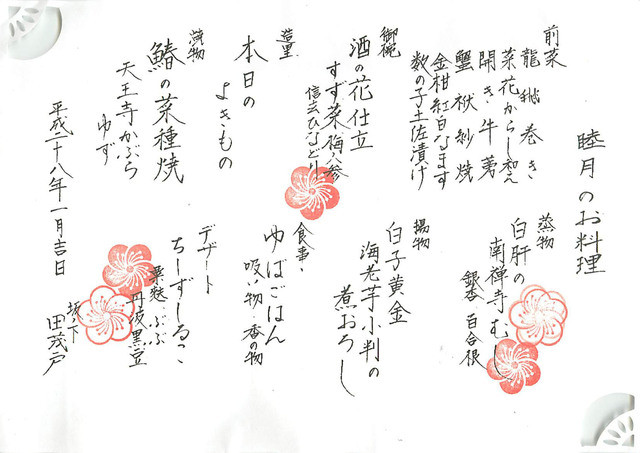 睦月のお料理
前菜
龍飛巻き
菜花からし和え
開き牛蒡
蟹袱紗焼
金柑紅白なます
数の子土佐漬け
御椀
酒の花仕立
すず菜 梅人参
信玄ひなどり
造里
本日の
よきもの
焼物
鰆の菜種焼
天王寺かぶら
ゆず
蒸物
白肝の
南禅寺むし
銀杏 百合根
揚物
白子黄金
海老芋小判の
煮おろし
食事・
ゆばごはん
吸い物・香の物
デザート
ちーずしるこ
粟麩・ぶぶ
丹波黒豆
平成二十八年一月吉日
坂ノ下
田茂戸